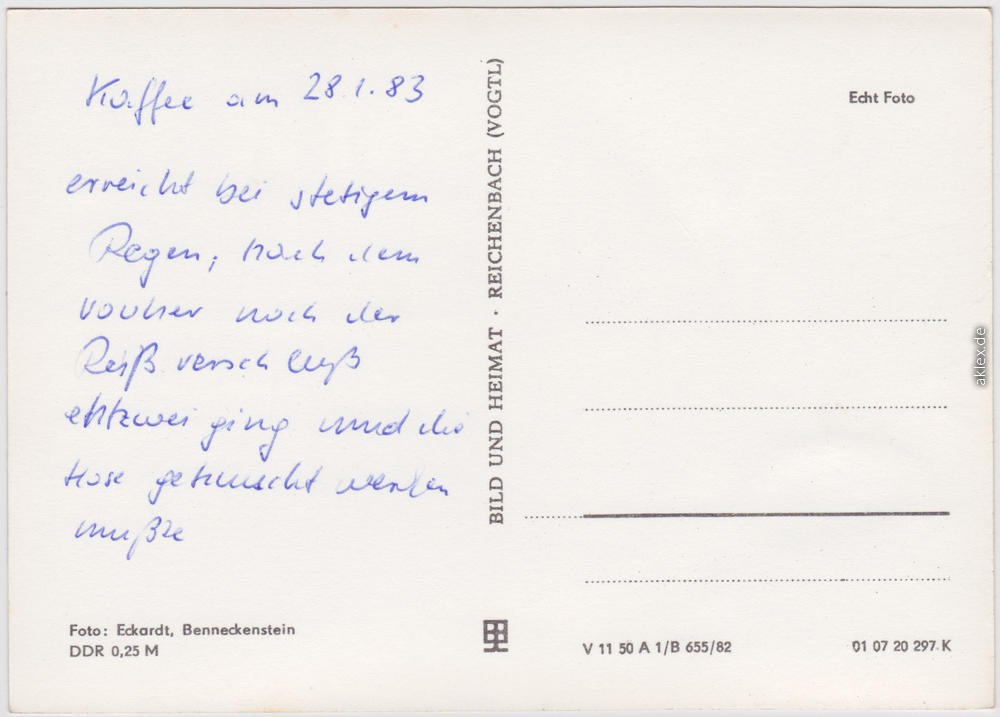 Kaffee am 28.1.83
erreicht bei stetigem
Regen, nach dem
vorher noch der
Reißverschluß
entzwei ging und die
Hose getauscht werden
mußte
Foto: Eckardt, Benneckenstein
DDR 0,25 M
BILD UND HEIMAT · REICHENBACH (VOGTL)
Echt Foto
V 11 50 A 1/B 655/82
01 07 20 297 K
aklex.de